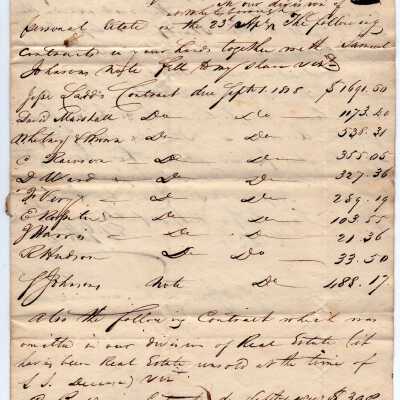 in our division of
personal Estate on the 23d The following
Contracts in your hands together with Samuel
Johnsons Note fell to my share Vizt
Ladds Contract due Sept 1 1815 $1691.50
David Marshall Do Do 1173.40
Whitney & Brown Do Do 538.31
C Rawson Do Do 355.05
D Ward Do Do 327.36
Do Do 259.19
E Do Do 103.55
J Do Do 21.36
R Hudson Do Do 33.50
S Johnsons Note Do 488.17
Also the following Contract which was
omitted in our division of Real Estate (it
having been Real Estate unsold at the time of
Decease) Vizt